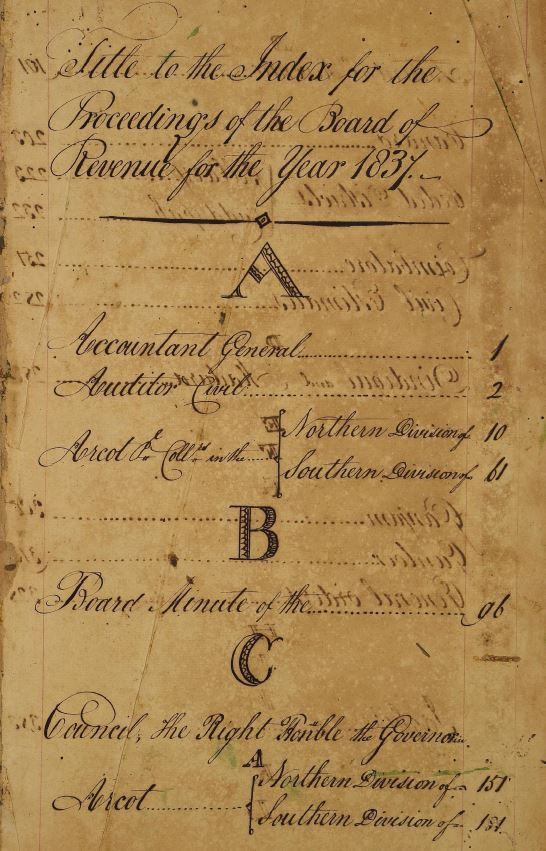 Title to the Index for the
Proceedings of the Board of
Revenue for the Year 1837.
A
Accountant General 1
Auditor Civil 2
Arcot Pr. Collrs in the Northern Division of 10
Southern Division of 61
B
Board Minute of the 96
C
Council, the Right Honble the Governor in
A
Arcot Northern Division of 151
Southern Division of 181